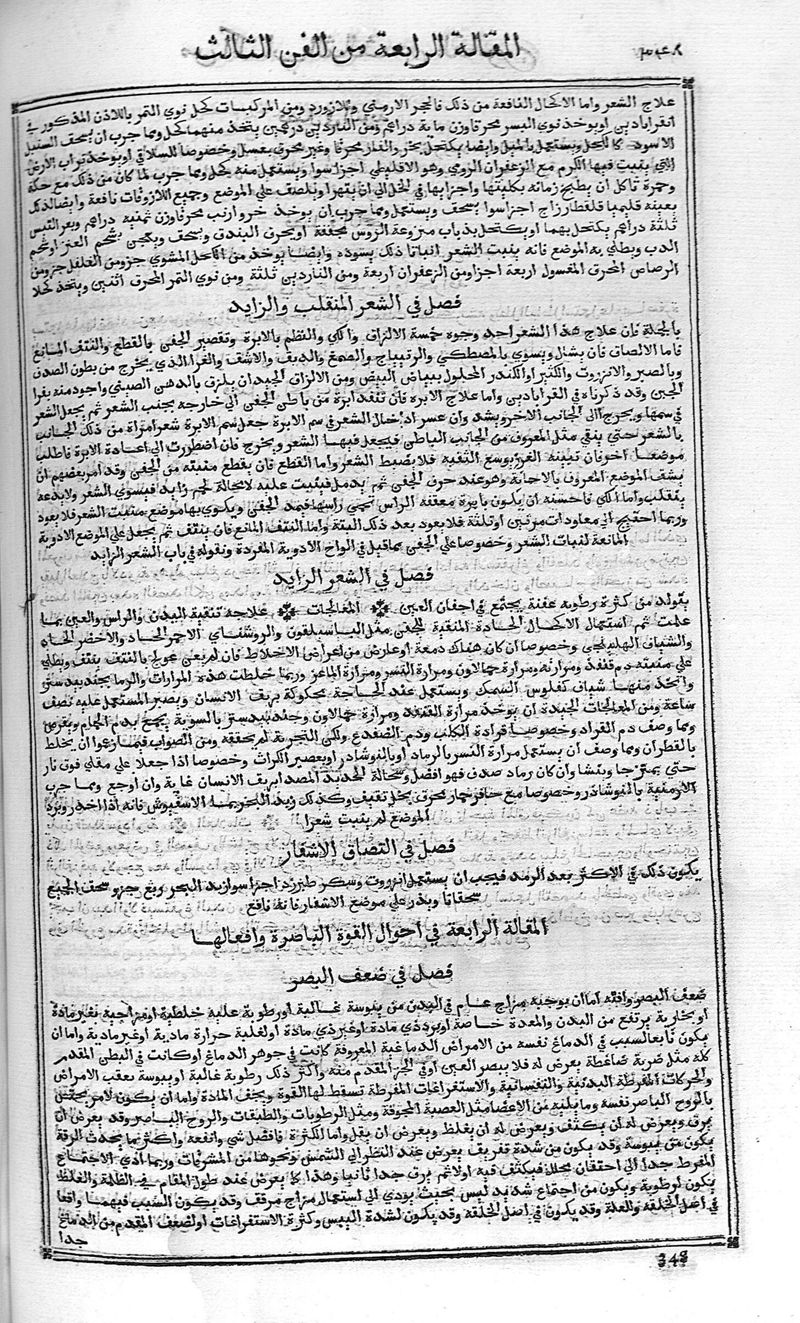 المقالة الرابعة من الفن الثالث
٣٤٨
علاج الشعر واما الاكحال النافعة من ذلك فالحجر الارمني واللازورد ومن المركبات كحل نوي التمر باللاذن المذكور في
انقراباديى اويوخذ نوي البسر محرقا وزن ماية دراهم ومن الناردين درهمين يتخذ منهما كحل ومما جرب ان يسحف السنبل
الاسود كالكحل ويستعمل بالميل وايضا يكتحل بخر والفار محرقا وغير محرق بعسل وخصوصا للسلاق اويوخذ تراب الارض
التي ينبت فيها الكرم مع الزعفران الرومي وهو الاقليطي اجزا سوا ويستعمل منه كحل ومما جرب لما كان من ذلك مع حكة
وحمرة تاكل ان يطبخ رمانه بكليتها واجزايها في الخل الي ان يتهرا ويلصف علي الموضع وجميع اللازوقات نافعة وايضا لذلك
بعينه قليميا قلقطار زاج اجزا سوا يسحف ويستعمل ومما جرب ان يوخذ خرو ارنب محرقا وزن ثمنيه دراهم وبعر التيس
ثلثة دراهم يكتحل بهما اويكتحل بذباب منزوعة الروس مجففة اويحرق البندق ويسحف ويعجن بشحم العنز اوشحم
الدب ويطلي به الموضع فانه ينبت الشعر انباتا ذلك يسوده وايضا يوخذ من الكحل المشوي جزو من الفلفل جزو من
الرصاص المحرق المغسول اربعة اجزا ومن الزعفران اربعة ومن الناردين ثلثة ومن نوي التمر المحرق اثنين ويتخذ كحلا
فصل في الشعر المنقلب والزايد
بالجملة فان علاج هذا الشعر احد وجوه خمسة الالزاق والكي والنظم بالابرة وتقصير الجفن بالقطع والنتف المانع
فاما الالصاق فان يشال ويسوي بالمصطكي والرتيياج والصمغ والدبق والاشف والغرا الذي يخرج من بطون الصدف
وبالصبر والانزروت والكثيرا والكندر المحلول ببياض البيض ومن الالزاق الجيد ان يلزق بالدهن الصيني واجود منه بغرا
الجبن وقد ذكرناه في القرابادين واما علاج الابرة فان تنفذ ابرة من باطن الجفن الي خارجه بجنب الشعر ثم يجعل الشعر
في سمها ويخرج الي الجانب الاخر ويشد وان عسر ادخال الشعر في سم الابرة جعل سم الابرة شعر امراة من ذلك الجانب
بالشعر حتي يبقي مثل العروة من الجانب الباطن فيجعل فيها الشعر ويخرج فان اضطررت الي اعادة الابرة فاطلب
موضعا اخر فان تثنيه الغرز يوسع الثقبه فلا يضبط الشعر واما القطع فان يقطع منبته من الجفن وقد امر بعضهم ان
يشف الموضع المعروف بالاجانة وهو عند حرف الجفن ثم يدمل فينبت عليه لا محالة لحم زايد فيسوي الشعر ولا يدعه
ينقلب واما الكي فاحسنه ان يكون بابرة معقفه الراس تحمي راسها فيمد الجفن ويكوي بها موضع منبت الشعر فلا يعود
وربما احتيج الي معاودات مرتين اوثلثة فلا يعود بعد ذلك البتة واما النتف المانع فان ينتف ثم يجعل علي الموضع الادوية
المانعة لنبات الشعر وخصوصا علي الجفن مما قيل في الواح الادوية المفردة ونقوله في باب الشعر الزايد
فصل في الشعر الزايد
يتولد من كثرة رطوبه عفنة يجتمع في اجفان العين المعالجات علاجه تنقية البدن والراس والعين بما
علمت ثم استعمال الاكحال الحادة المنقية للجفن مثل الباسليقون والروشناي الاحمر الحاد والاخضر الحاد
والشياف الهليلجي وخصوصا ان كان هناك دمعة اوعارض من اعراض الاخلاط فان لم يغن عولج بالنتف ينتف ويطلي
علي منبته دم قنفذ ومرارته ومرارة خمالاون ومرارة النسر ومرارة الماعز وربما خلطت هذه المرارات والدما بجندبيدستر
واتخذ منها شياف كفلوس السمك ويستعمل عند الحاجة محكوكة بريف الانسان ويصبر المستعمل عليه نصف
ساعة ومن المعالجات الجيدة ان يوخذ مرارة القنفد ومرارة خمالاون وجندبيدستر بالسوية يجمع بدم الحمام ويقرص
ومما وصف دم القراد وخصوصا قرادة الكلب ودم الضفدع ولكن التجربة لم تحققه ومن الصواب فيما زعموا ان يخلط
بالقطران ومما وصف ان يستعمل مرارة النسر بالرماد اوبالنوشادر اوبعصير الكراث وخصوصا اذا جعلا علي مقلي فوق نار
حتي يمتزجا وينشا وان كان رماد صدف فهو افضل وسحالة الحديد المصدا بريف الانسان غاية وان اوجع ومما جرب
الارضية بالنوشادر وخصوصا مع حافر حمار محرق بخل ثقيف وكذلك زبد البحر بما الاسفيوش فانه اذا خدر وبرد
الموضع لم ينبت شعرا
فصل في التصاق الاشفار
يكون ذلك في الاكثر بعد الرمد فيجب ان يستعمل انزروت وسكر طبرزد اجزا سوا زبد البحر وبع جزو سحف الجميع
سحقا ناعا ويذر علي موضع الاشفار فانه نافع
المقالة الرابعة في احوال القوة الباصرة وافعالها
فصل في ضعف البصر
ضعف البصر وافته اما ان يوجبه مزاج عام في البدن من يبوسة غالبة اورطوبة غلبة خلطية اومزاجية بغير مادة
اوبخارية يرتفع من البدن والمعدة خاصة اوبرد ذي مادة اوغير ذي مادة اولغلبة حرارة مادية اوغير مادية واما ان
يكون تابعا لسبب في الدماغ نفسه من الامراض الدماغية المعروفة كانت في جوهر الدماغ اوكانت في البطن المقدم
كله مثل ضربة ضاغطة يعرض له فلا يبصر العين اوفي الجزء المقدم منه واكثر ذلك رطوبة غالبة اويبوسة يعقب الامراض
والحركات المفرطة البدنية والنفسانية والاستفراغات المفرطة تسقط لها القوة ويجف المادة واما ان يكون لامر يختص
بالروح الباصر نفسه وما يليه من الاعضا مثل العصبة المجوفة ومثل الرطوبات والطبقات والروح الباصر وقد يعرض ان
يرق ويعرض له ان يكثف ويعرض له ان يغلظ ويعرض ان يقل واما الكثرة فافضل شي وانفعه واكثر ما يحدث الرقة
يكون من يبوسة وقد يكون من شدة تفريف يعرض عند النظر الي الشمس ونحوها من المشرقات وربما ادي الاجتماع
المفرط جدا الي احتقان محلل فيكثف فيه اولا ثم يرق جدا ثانيا وهذا كما يعرض عند طول المقام في الظلمة والغلظ
يكون لرطوبة ويكون من اجتماع شديد ليس بحيث يودي الي استعمال مزاج مرقف وقد يكون السبب فيهما واقعا
في اصل الخلقه والقلة وقد يكون في اصل الخلقه وقد يكون لشدة اليبس وكثرة الاستفراغات اولضعف المقدم من الدماغ
جدا
348